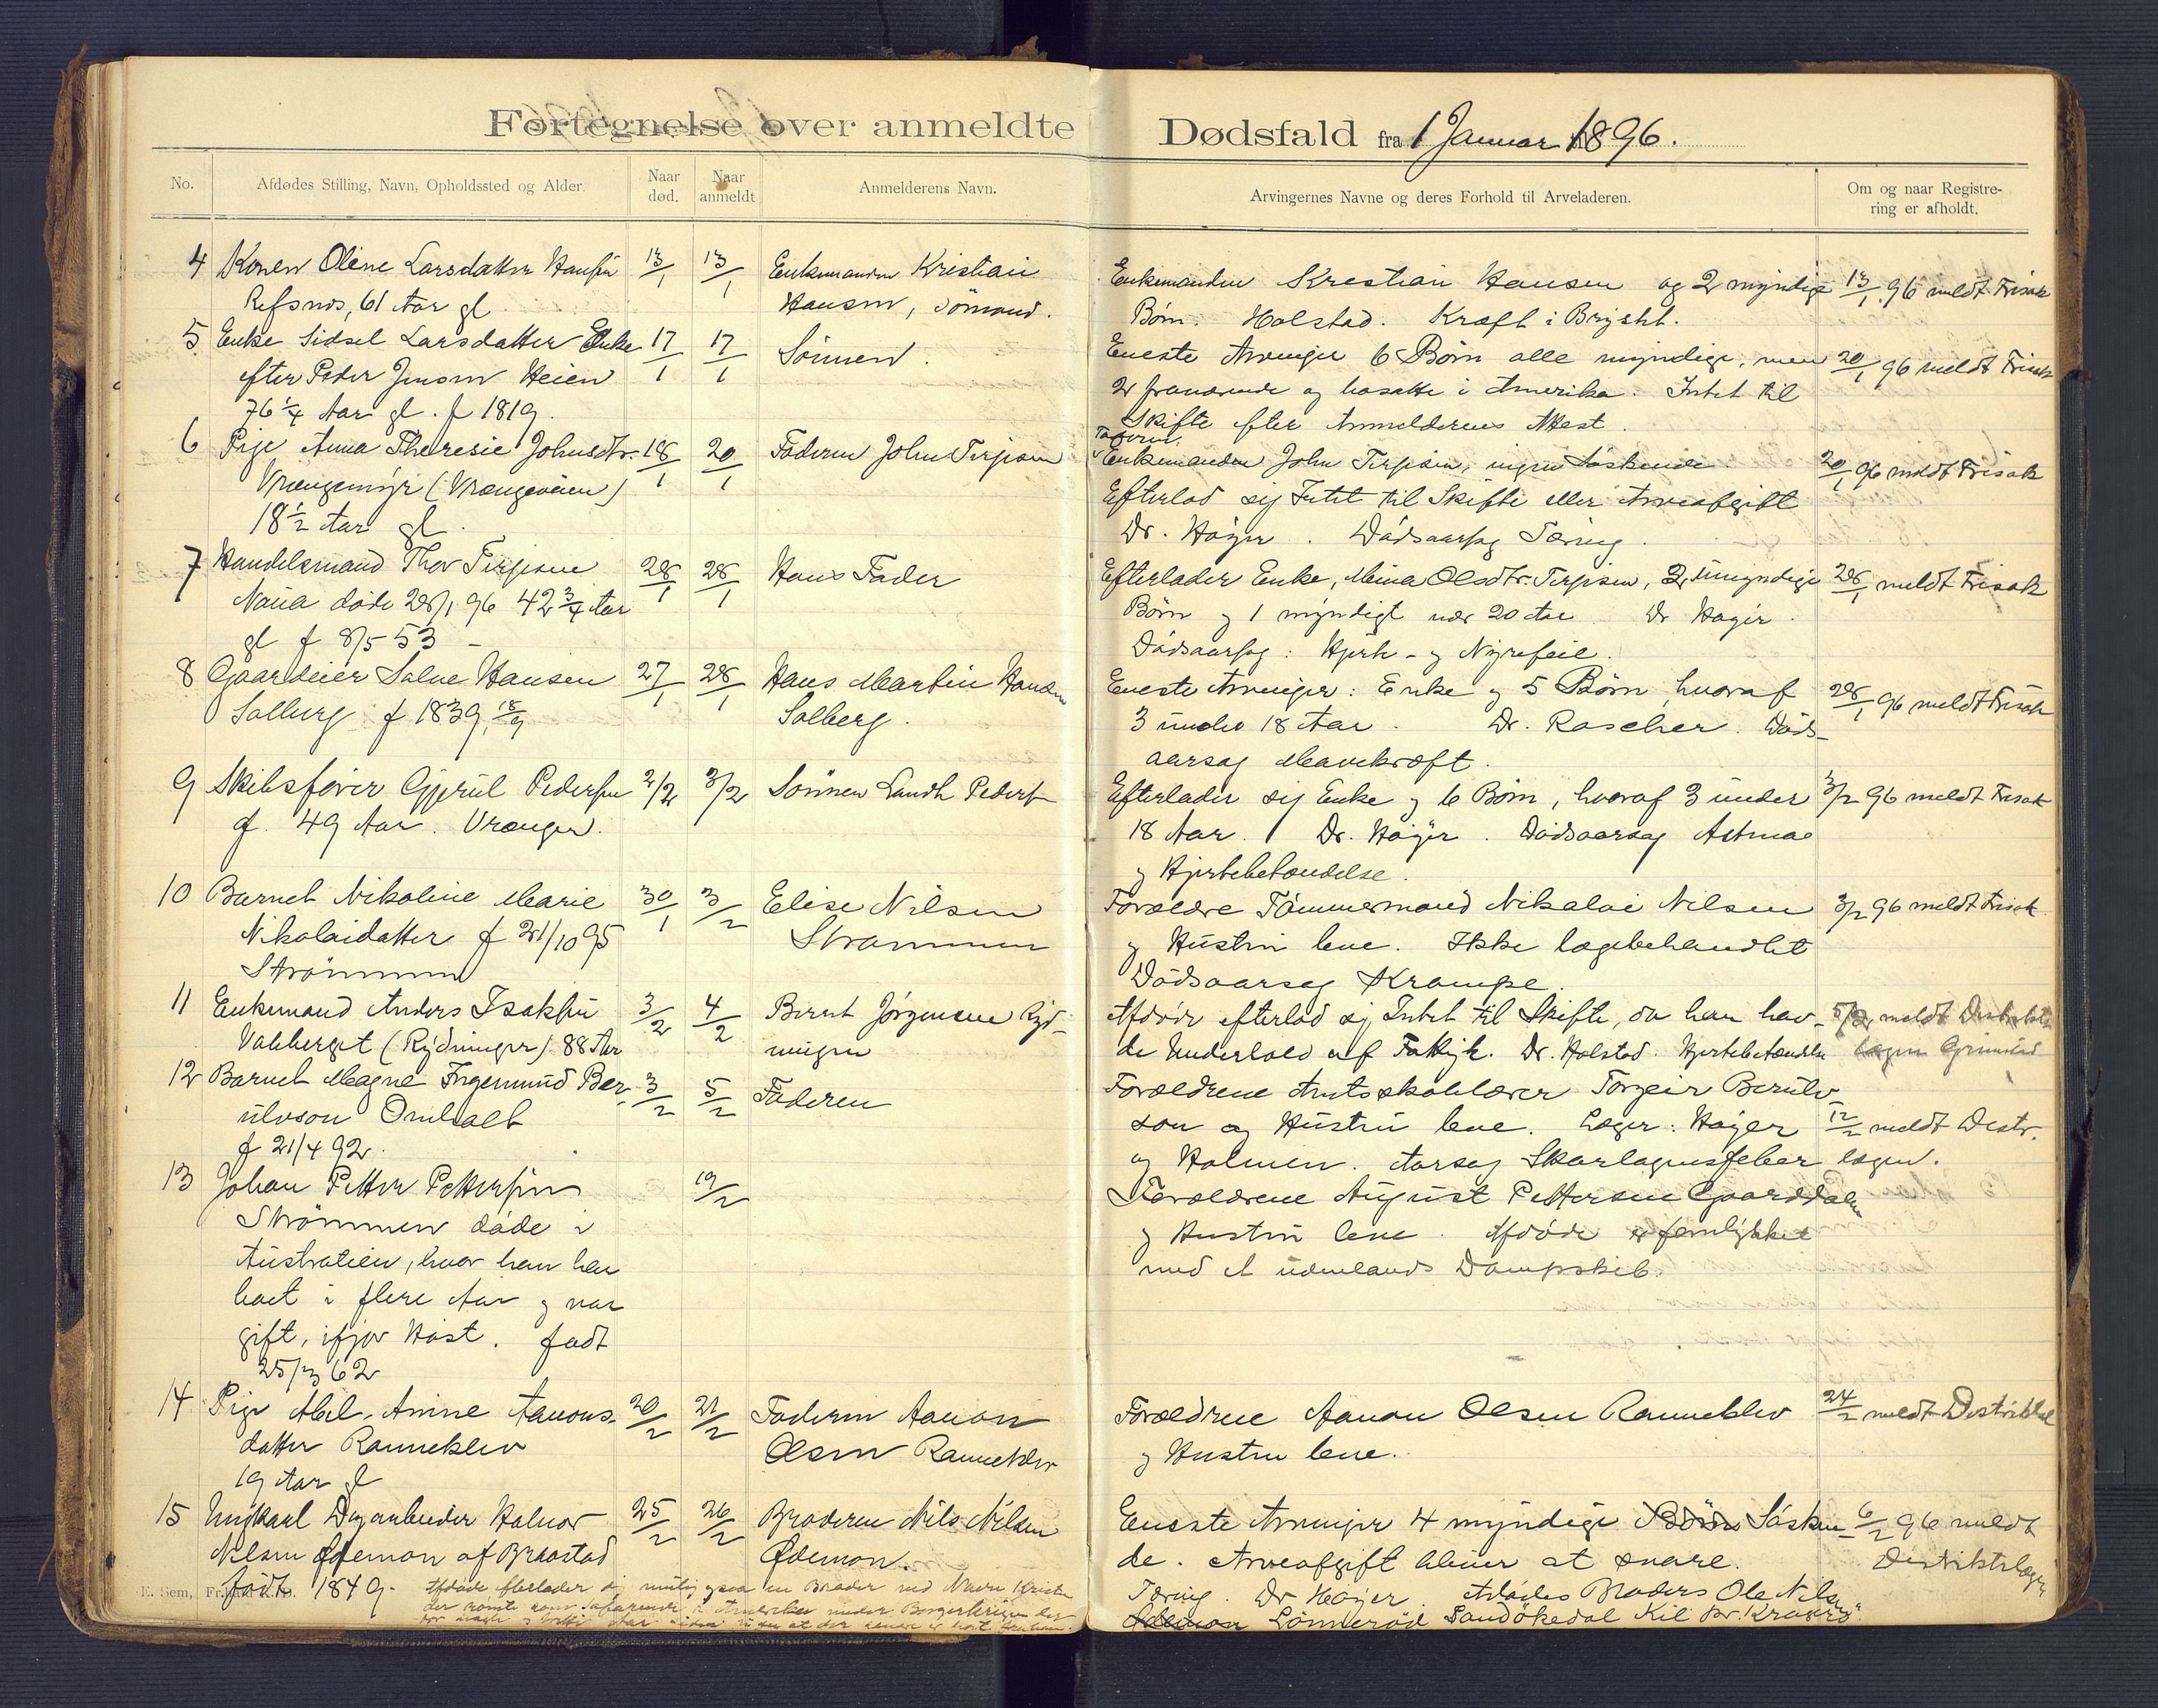 Fortegnelse over anmeldte Dødsfald fra 1 Januar 1896.
No.
Afdødes Stilling, Navn, Opholdssted og Alder.
Naar død.
Naar anmeldt
Anmelderens Navn.
Arvingernes Navne og deres Forhold til Arveladeren.
Om og naar Registrering er afholdt.
4 Konen Oline Larsdatter Hansen 13/1 13/1 Enkemanden Kristian
Refsnes, 61 Aar gl Hansen, Sömand.
Enkemanden Krestian Hansen og 2 myndige 13/1 96 meldt Frisak
Børn. Holstad. Kræft i Brystet.
5 Enke Sidsel Larsdatter Enke 17/1 17/1 Sönnen.
efter Peder Jensen Heien
76 1/4 Aar gl. f 1819.
Eneste Arvinger 6 Börn alle myndige, men 20/1 96 meldt Frisak
2 fraværende og bosatte i Amerika. Intet til
Skifte efter Anmelderens Attest.
6 Pige Anna Theresie Johnsdtr. 18/1 20/1 Faderen John Terjesen
Vrengemyr (Vrengeveien)
18 1/2 Aar gl.
Faderen
Enkemanden John Terjesen, ingen Söskende. 20/1 96 meldt Frisak
Efterlod sig Intet til Skifte eller Arveafgift
Dr. Höyer. Dödsaarsag Tæring.
7 Handelsmand Thor Terjesen 28/1 28/1 Hans Fader
Naria döde 28/1 96 42 3/4 Aar
gl f 8/5 53 -
Efterlader Enke, Mina Olsdtr. Terjesen, 2 umyndige 28/1 meldt Frisak
Börn og 1 myndigt nær 20 Aar Dr Höyer.
Dödsaarsag: Hjerte- og Nyrefeil.
8 Gaardeier Salve Hansen 27/1 28/1 Hans Martin Hansen
Solberg f 1839, 18/9 Solberg.
Eneste Arvinger: Enke og 5 Börn, hvoraf 28/1 96 meldt Frisak
3 under 18 Aar. Dr. Rascher. Döds-
aarsag Mavekræft.
9 Skibsförer Gjerul Pedersen 2/2 3/2 Sönnen Pedersen
gl. 49 Aar. Vrengen.
Efterlader sig Enke og 6 Börn, hvoraf 3 under 3/2 96 meldt Frisak
18 Aar. Dr. Höyer. Dödsaarsag Astma
og Hjertebetændelse.
10 Barnet Nikoline Marie 30/1 3/2 Elise Nilsen
Nikolaidatter f 21/10 95 Strömmen
Strömmen
Forældre Tömmermand Nikolai Nilsen 3/2 96 meldt Frisak
og Hustru leve. Ikke lægebehandlet
Dödsaarsag Krampe.
11 Enkemand Anders Isaksen 3/2 4/2 Bernt Jörgensen Ryd-
Vabberget (Rydninger) 88 Aar ningen
Afdöde efterlod sig Intet til Skifte, da han hav- 5/2 meldt Distrikts
de Underhold af Fattigk. Dr. Holstad. Hjertebetændelse lægen
12 Barnet Magne Ingemund Ber- 3/2 5/2 Faderen
ulvson Omholt
f 21/4 92.
Forældrene Amtsskolelærer Torgeir Berulv-
son og Hustru leve. Læger: Höyer 12/2 meldt Distr.
og Holmen. Aarsag Skarlagensfeber lægen.
13 Johan Petter Pettersen 19/2
Strömmen döde i
Australien, hvor han har
boet i flere Aar og var
gift, ifjor Höst. födt
25/3 62
Forældrene August Pettersen Gaarddalen
og Hustru leve. Afdöde er forulykket
med et udenlands Dampskib.
14 Pige Abel Amine Aanons- 20/2 21/2 Faderen Aanon
datter Ranneklev Olsen Ranneklev
19 Aar gl
Forældrene Aanon Olsen Ranneklev 24/2 meldt Distriktsl
og Hustru leve.
15 Ungkarl Dagarbeider Halvor 25/2 26/2 Broderen Nils Nilsen
Nilsen Ødemon af Braastad Ødemon.
födt 1849.
Eneste Arvinger 4 myndige Börn Sösken- 6/2 96 meldt
de. Arveafgift bliver at svare. Distriktslægen
Tæring. Dr Höyer. Afdödes Broders Ole Nilsen
Ødemon Lönneröd Sandökedal Kil pr. Kragerö.
E. Sem, Fr.hald
Afdöde efterlader sig en Broder ved Navn